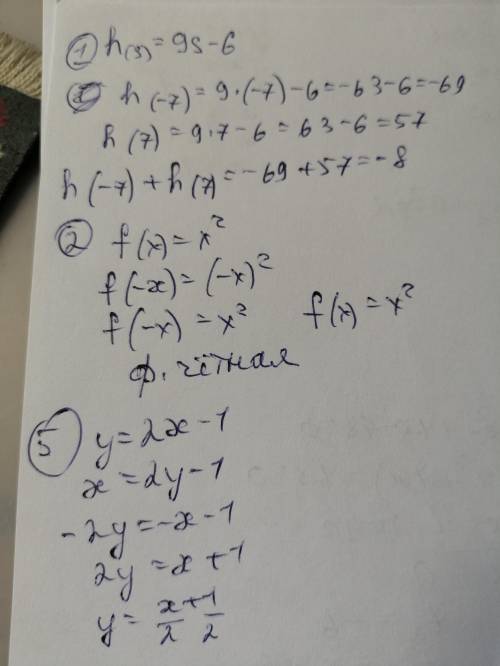 ① h(s) = 9s - 6
h(-7) = 9·(-7) - 6 = -63 - 6 = -69
h(7) = 9·7 - 6 = 63 - 6 = 57
h(-7) + h(7) = -69 + 57 = -8
② f(x) = x²
f(-x) = (-x)²
f(-x) = x² f(x) = x²
ф. чётная
⑤ y = 2x - 1
x = 2y - 1
-2y = -x - 1
2y = x + 1
y = x/2 + 1/2